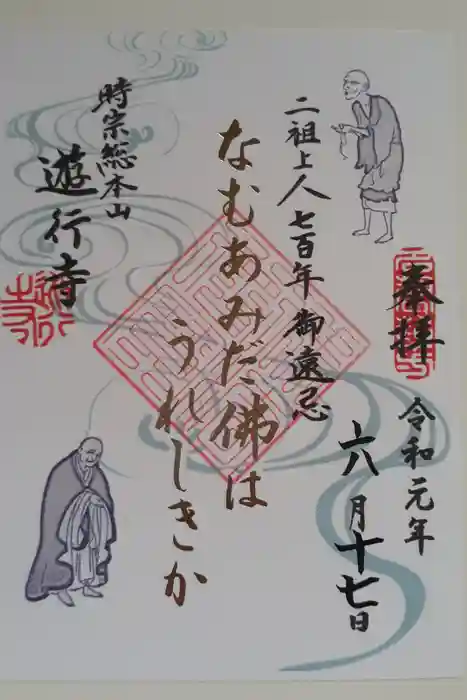 奉拝
令和元年
六月十七日
二祖上人七百年御遠忌
なむあみだ佛は
うれしきか
時宗総本山
遊行寺